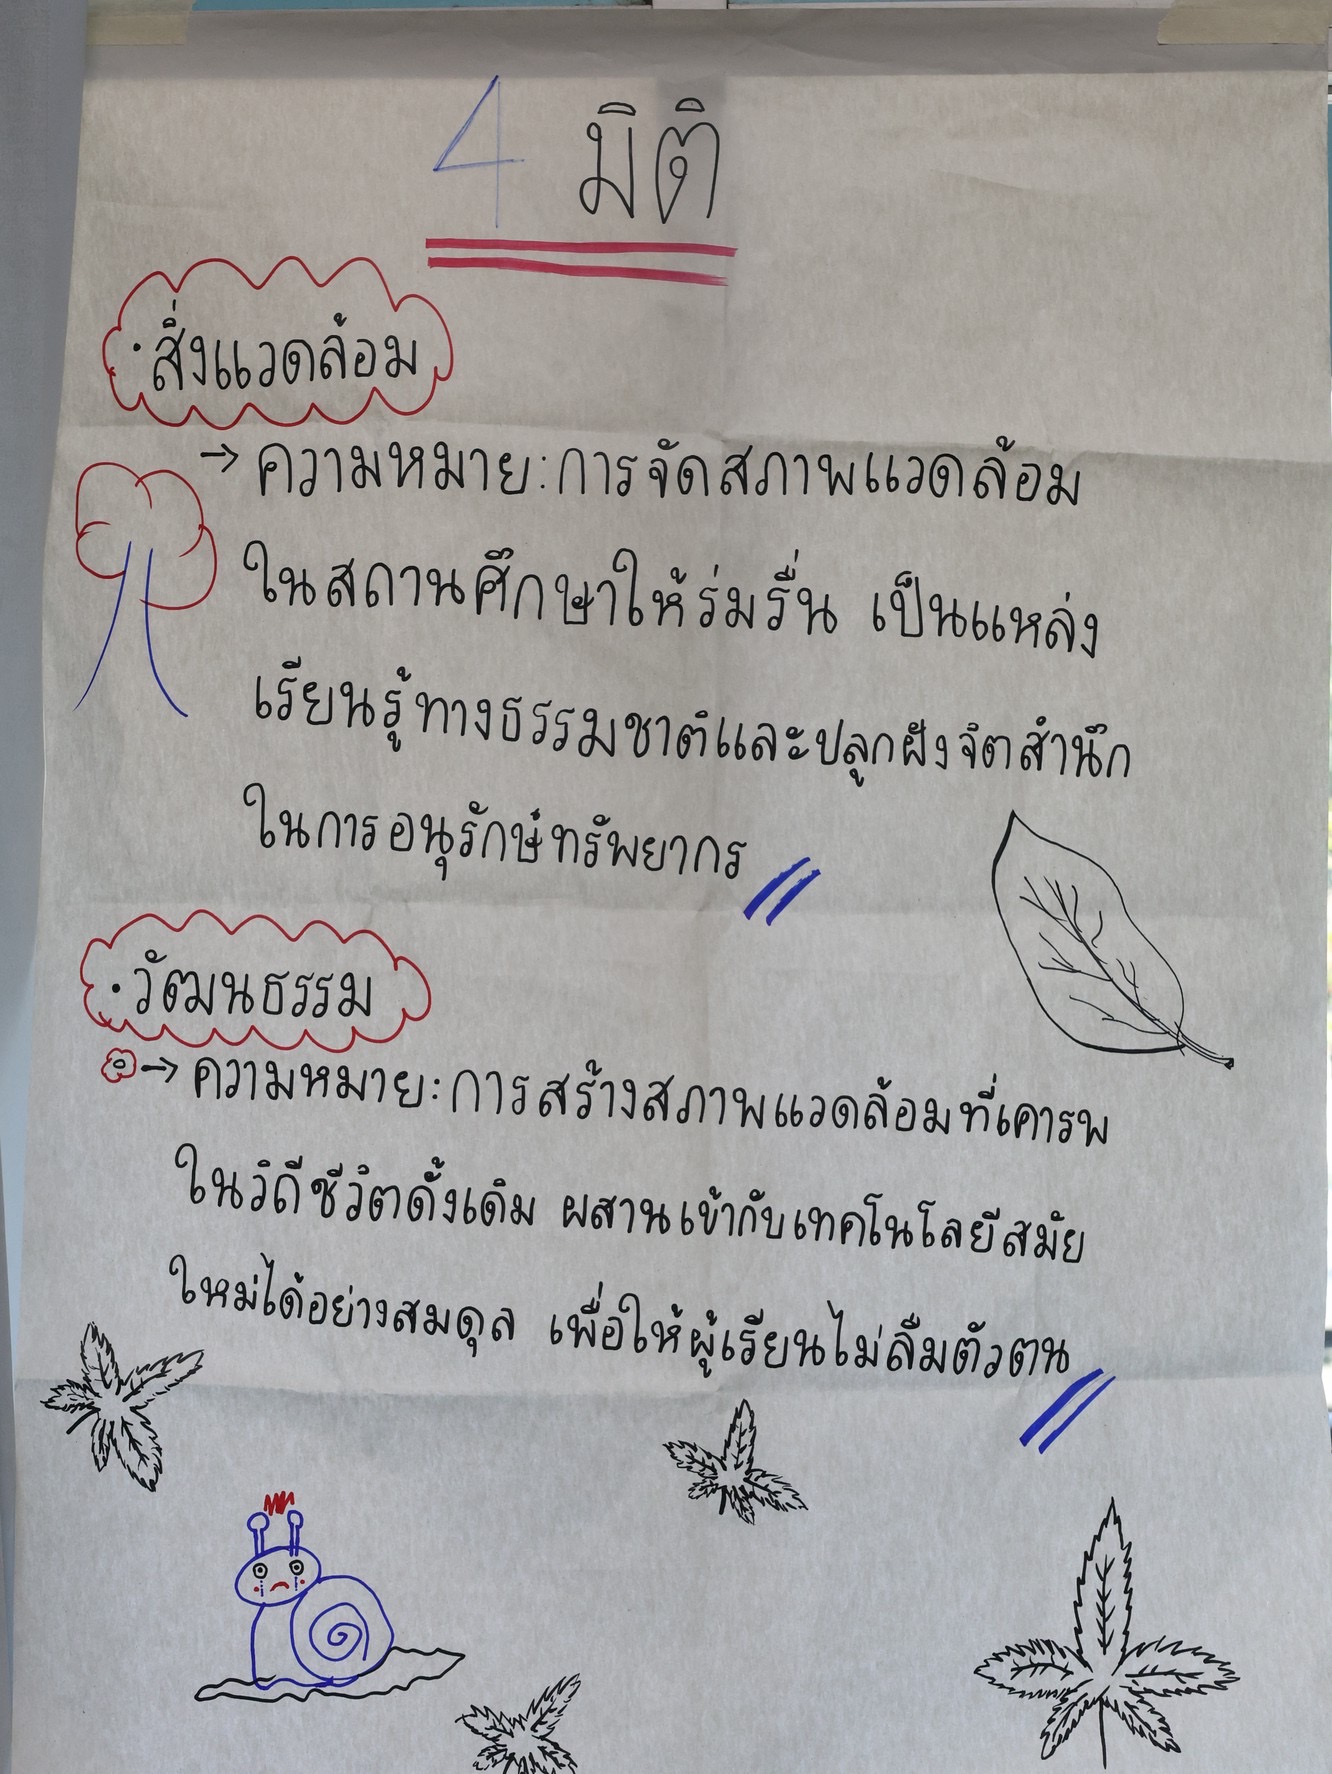 4 มิติ
• สิ่งแวดล้อม
→ ความหมาย : การจัดสภาพแวดล้อม
ในสถานศึกษาให้ร่มรื่น เป็นแหล่ง
เรียนรู้ทางธรรมชาติและปลูกฝังจิตสำนึก
ในการอนุรักษ์ทรัพยากร
• วัฒนธรรม
→ ความหมาย : การสร้างสภาพแวดล้อมที่เคารพ
ในวิถีชีวิตดั้งเดิม ผสานเข้ากับเทคโนโลยีสมัย
ใหม่ได้อย่างสมดุล เพื่อให้ผู้เรียนไม่ลืมตัวตน